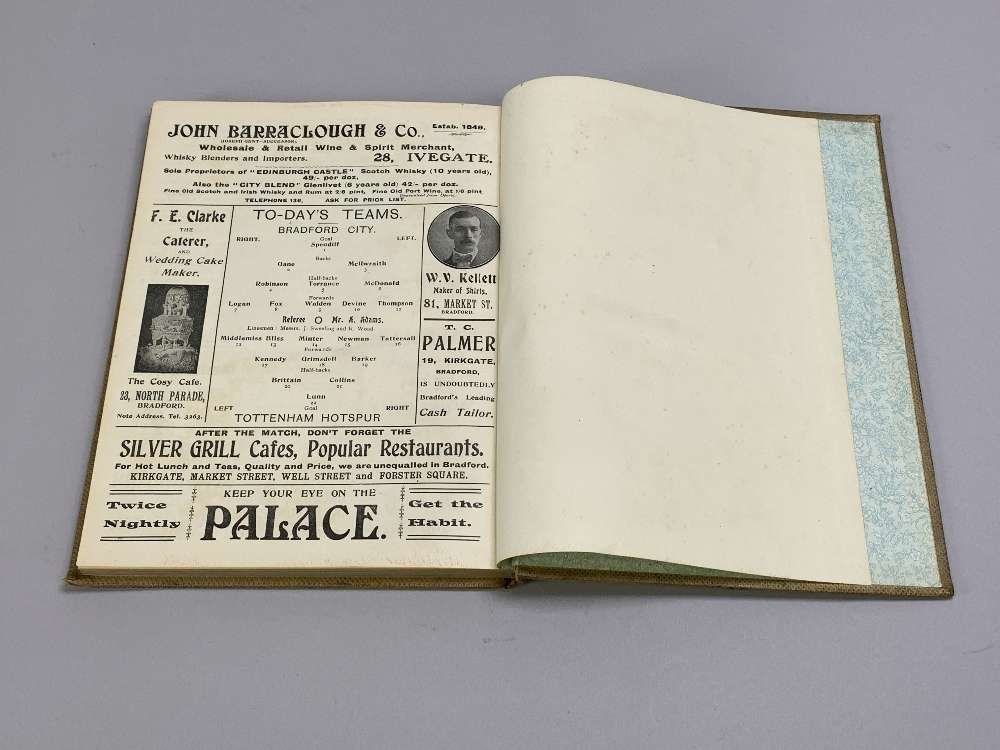 JOHN BARRACLOUGH & Co., Estab. 1849.
(JOSEPH GENT—SUCCESSOR)
Wholesale & Retail Wine & Spirit Merchant,
Whisky Blenders and Importers. 28, IVEGATE.
Sole Proprietors of "EDINBURGH CASTLE" Scotch Whisky (10 years old),
49/- per doz.
Also the "CITY BLEND" Glenlivet (6 years old) 42/- per doz.
Fine Old Scotch and Irish Whisky and Rum at 2/6 pint, Fine Old Port Wine, at 1/6 pint
TELEPHONE 138, ASK FOR PRICE LIST.
F. E. Clarke
THE
Caterer,
AND
Wedding Cake
Maker.
The Cosy Cafe.
23, NORTH PARADE,
BRADFORD.
Note Address. Tel. 3263.
TO-DAY'S TEAMS.
BRADFORD CITY.
RIGHT. Goal LEFT.
Spendiff
1
Backs
Gane McIlwraith
2 3
Half-backs
Robinson Torrance McDonald
4 5 6
Forwards
Logan Fox Walden Devine Thompson
7 8 9 10 11
Referee O Mr. A. Adams.
Linesmen: Messrs. J. Sweeting and R. Wood.
Middlemiss Bliss Minter Newman Tattersall
12 13 14 15 16
Forwards
Kennedy Grimsdell Barker
17 18 19
Half-backs
Brittain Collins
20 21
Lunn
22
LEFT Goal RIGHT
TOTTENHAM HOTSPUR
W.V. Kellett
Maker of Shirts.
81, MARKET ST.
BRADFORD.
T. C.
PALMER
19, KIRKGATE,
BRADFORD,
IS UNDOUBTEDLY
Bradford's Leading
Cash Tailor.
AFTER THE MATCH, DON'T FORGET THE
SILVER GRILL Cafes, Popular Restaurants.
For Hot Lunch and Teas, Quality and Price, we are unequalled in Bradford.
KIRKGATE, MARKET STREET, WELL STREET and FORSTER SQUARE.
Twice
Nightly
KEEP YOUR EYE ON THE
PALACE.
Get the
Habit.